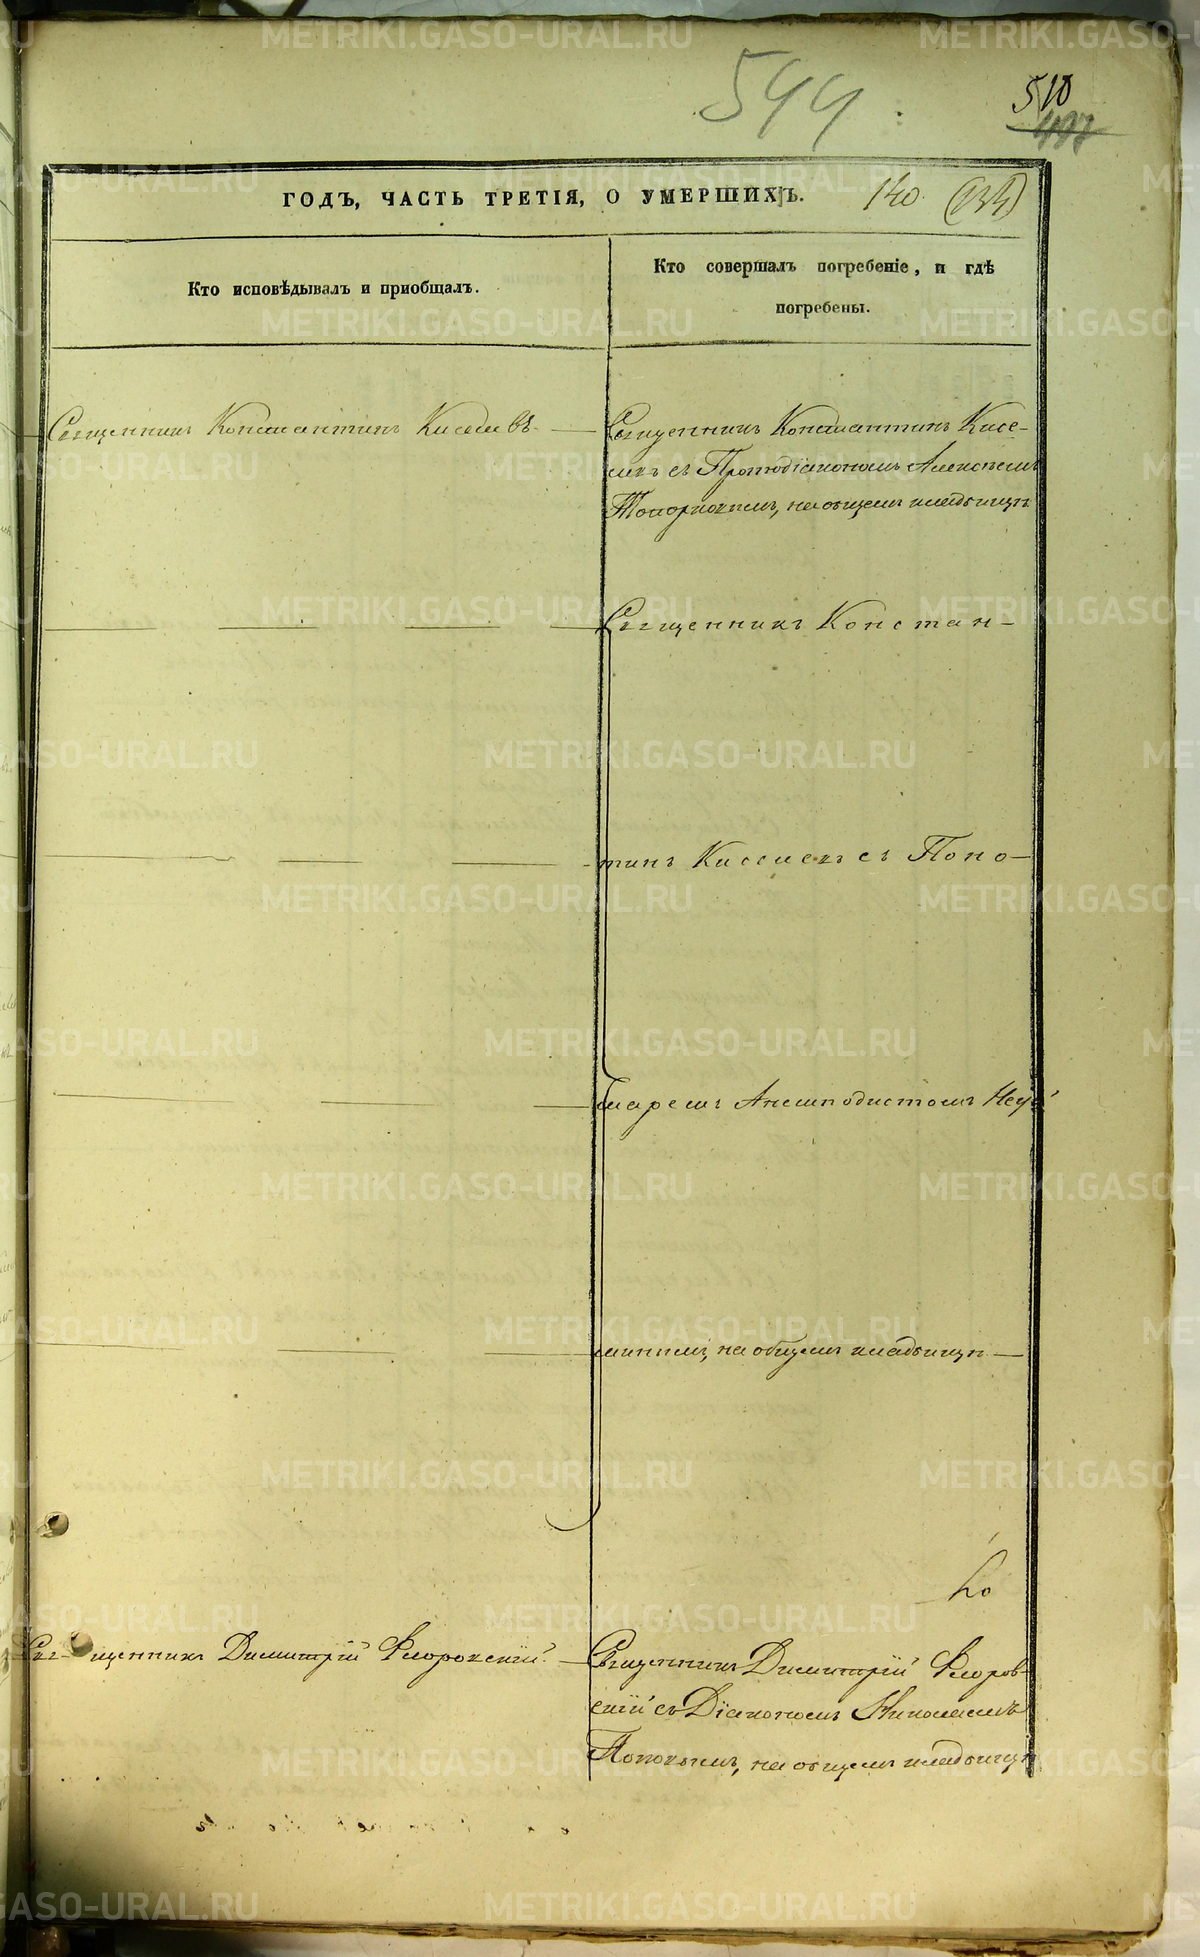 544
510
ГОДЪ, ЧАСТЬ ТРЕТІЯ, О УМЕРШИХЪ. 140
Кто исповѣдывалъ и приобщалъ.
Кто совершалъ погребеніе, и гдѣ
погребены.
Священникъ Константинъ Киселевъ.
Священникъ Константинъ Кисе-
левъ съ Протодіакономъ Алексѣемъ
Топорковымъ, на общемъ кладбищѣ
Священникъ Констан-
тинъ Киселевъ съ Поно-
маремъ Анемподистомъ Неуй
минымъ, на общемъ кладбищѣ
Священникъ Димитрій Флоровскій.
Священникъ Димитрій Флоров-
скій съ Діакономъ Николаемъ
Поповымъ, на общемъ кладбищѣ
METRIKI.GASO-URAL.RU